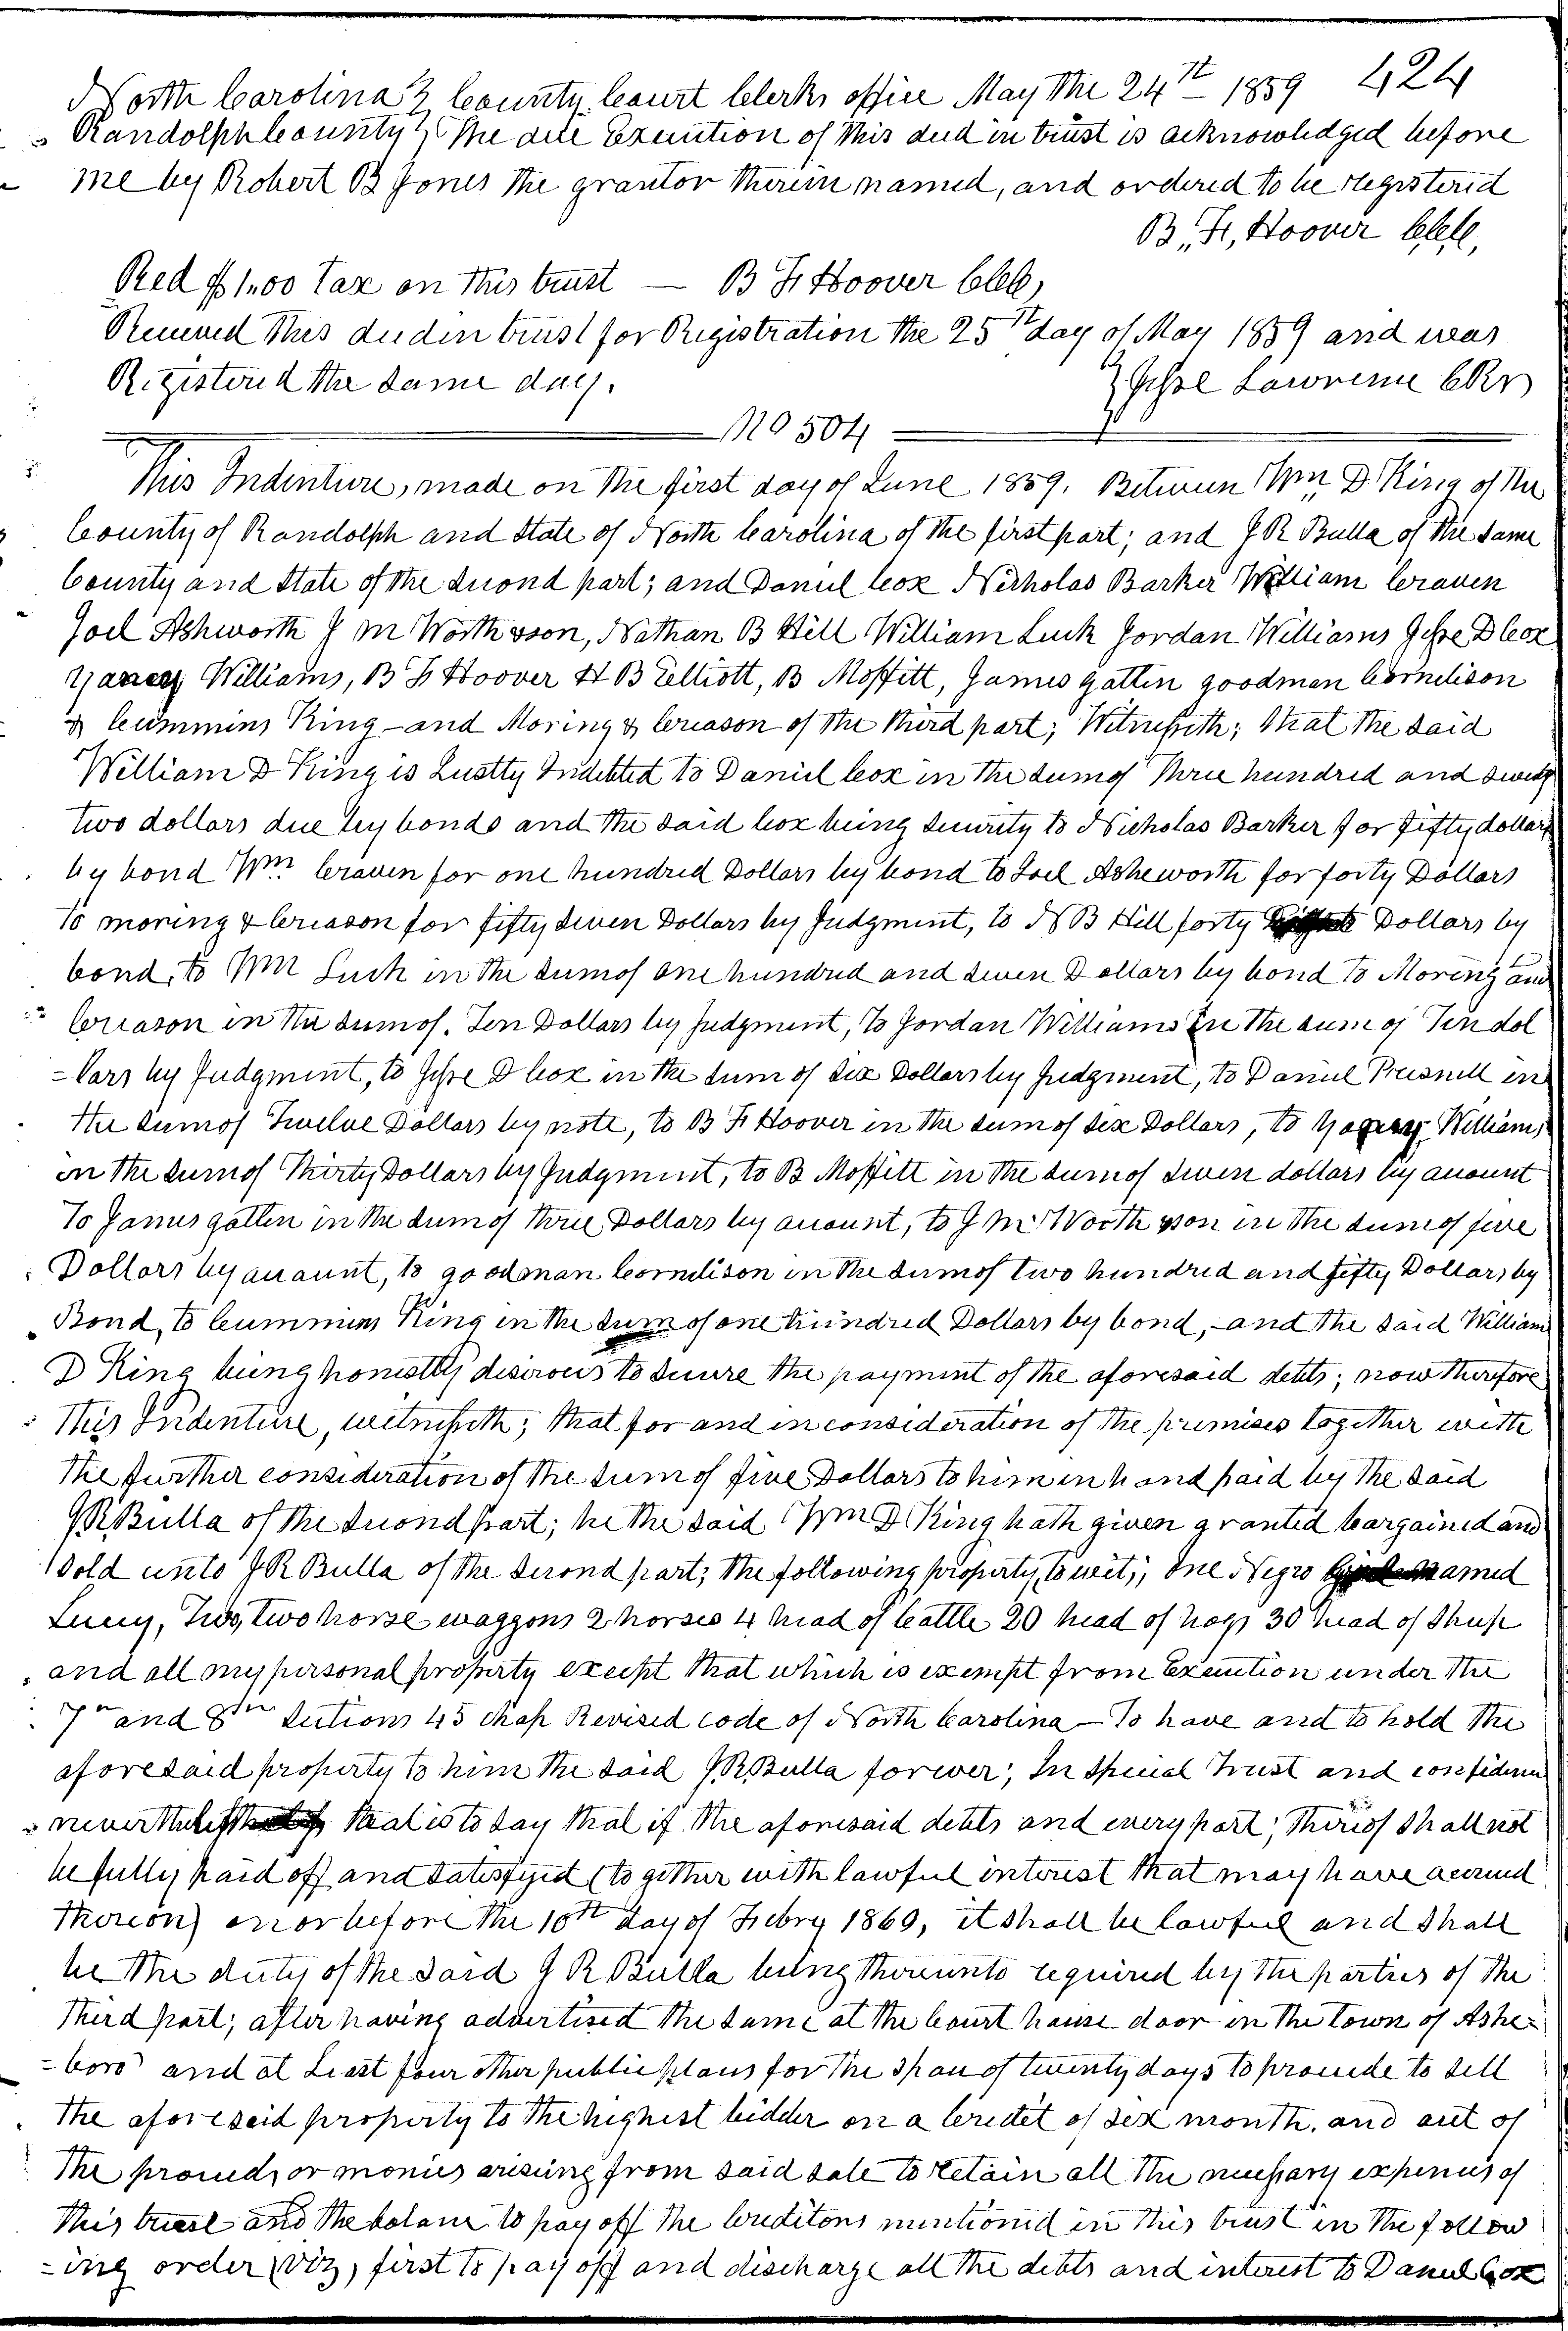 424
North Carolina } County Court Clerks office May the 24th 1859
Randolph County } The due Execution of this deed in trust is acknowledged before
me by Robert B Jones the grantor therein named, and ordered to be registered
B, F, Hoover CCC,
Recd $1.00 tax on this trust — B F Hoover CCC,
Received this deed in trust for Registration the 25th day of May 1859 and was
Registered the same day. } Jesse Lawrence
No 504
This Indenture, made on the first day of June 1859. Between Wm D. King of the
County of Randolph and State of North Carolina of the first part; and J R Bulla of the same
County and State of the second part; and Daniel Cox Nicholas Barker William Craven
Joel Ashworth J M Worth & son, Nathan B Hill William Luck Jordan Williams Jesse D Cox
Yancey Williams, B F Hoover H B Elliott, B Moffitt, James gatlin goodman Cornelison
& Cummins King - and Moring & Creason of the third part; Witnesseth; that the said
William D King is Justly Indebted to Daniel Cox in the sum of three hundred and twenty
two dollars due by bonds and the said Cox being security to Nicholas Barker for fifty dollars
by bond Wm Craven for one hundred Dollars by bond to Joel Asheworth for forty Dollars
to moring & Creason for fifty seven Dollars by Judgment, to N B Hill forty Dollars by
bond, to Wm Luck in the sum of one hundred and seven Dollars by bond to Moring and
Creason in the sum of. Ten Dollars by Judgment, To Jordan Williams In the sum of Ten dol
-lars by Judgment, to Jesse D Cox in the sum of six Dollars by Judgment, to Daniel Presnell in
the sum of Twelve Dollars by note, to B F Hoover in the sum of six Dollars, to Yancey Williams,
in the sum of Thirty Dollars by Judgment, to B Moffitt in the sum of seven dollars by account
To James gatlin in the sum of three Dollars by account, to J M Worth & son in the sum of five
Dollars by account, to goodman Cornelison in the sum of two hundred and fifty Dollars by
Bond, to Cummins King in the sum of one hundred Dollars by bond, - and the said William
D King being honestly desirous to secure the payment of the aforesaid debts; now therefore
this Indenture, witnesseth; that for and in consideration of the premises together with
the further consideration of the sum of five Dollars to him in hand paid by the said
J R Bulla of the second part; he the said Wm D King hath given granted bargained and
Sold unto J R Bulla of the second part; the following property, to wit; One Negro named
Lucy, Two, two horse waggons 2 horses 4 head of Cattle 20 head of hogs 30 head of Sheep
and all my personal property except that which is exempt from Execution under the
7th and 8th Sections 45 chap Revised code of North Carolina — To have and to hold the
aforesaid property to him the said J R Bulla forever; In Special Trust and confidence
nevertheless that is to say that if the aforesaid debts and every part; thereof shall not
be fully paid off and satisfyed (together with lawful interest that may have accrued
thereon) on or before the 10th day of Febry 1860, it shall be lawful and shall
be the duty of the said J R Bulla being thereunto required by the parties of the
third part; after having advertised the same at the Court house door in the town of Ashe-
-boro and at Least four other public places for the span of twenty days to proceede to sell
the aforesaid property to the highest bidder on a Credit of six month, and out of
the proceeds, or monies arising from said sale to retain all the necessary expenses of
this trust and the balance to pay off the Creditors mentioned in this trust in the follow
-ing order, viz, first to pay off and discharge all the debts and interest to Daniel Cox